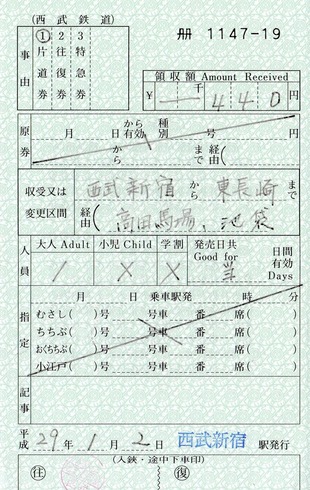 (西武鉄道)
冊 1147-19
事由
① 片道券
2 往復券
3 特急券
領収額 Amount Received
￥ 千 440 円
原券
月 日 から有効 種別 号
から まで 経由(
収受又は変更区間
西武新宿 から 東長崎 まで
経由( 高田馬場、池袋
人員
大人 Adult 小児 Child 学割 発売日共 Good for 日間有効 Days
/ X X 当
指定
月 日 乗車駅発 時 分
むさし( )号 号車 番 席( )
ちちぶ( )号 号車 番 席( )
おくちちぶ( )号 号車 番 席( )
小江戸( )号 号車 番 席( )
記事
平成 29 年 1 月 2 日 西武新宿 駅発行
(入鋏・途中下車印)
往 復